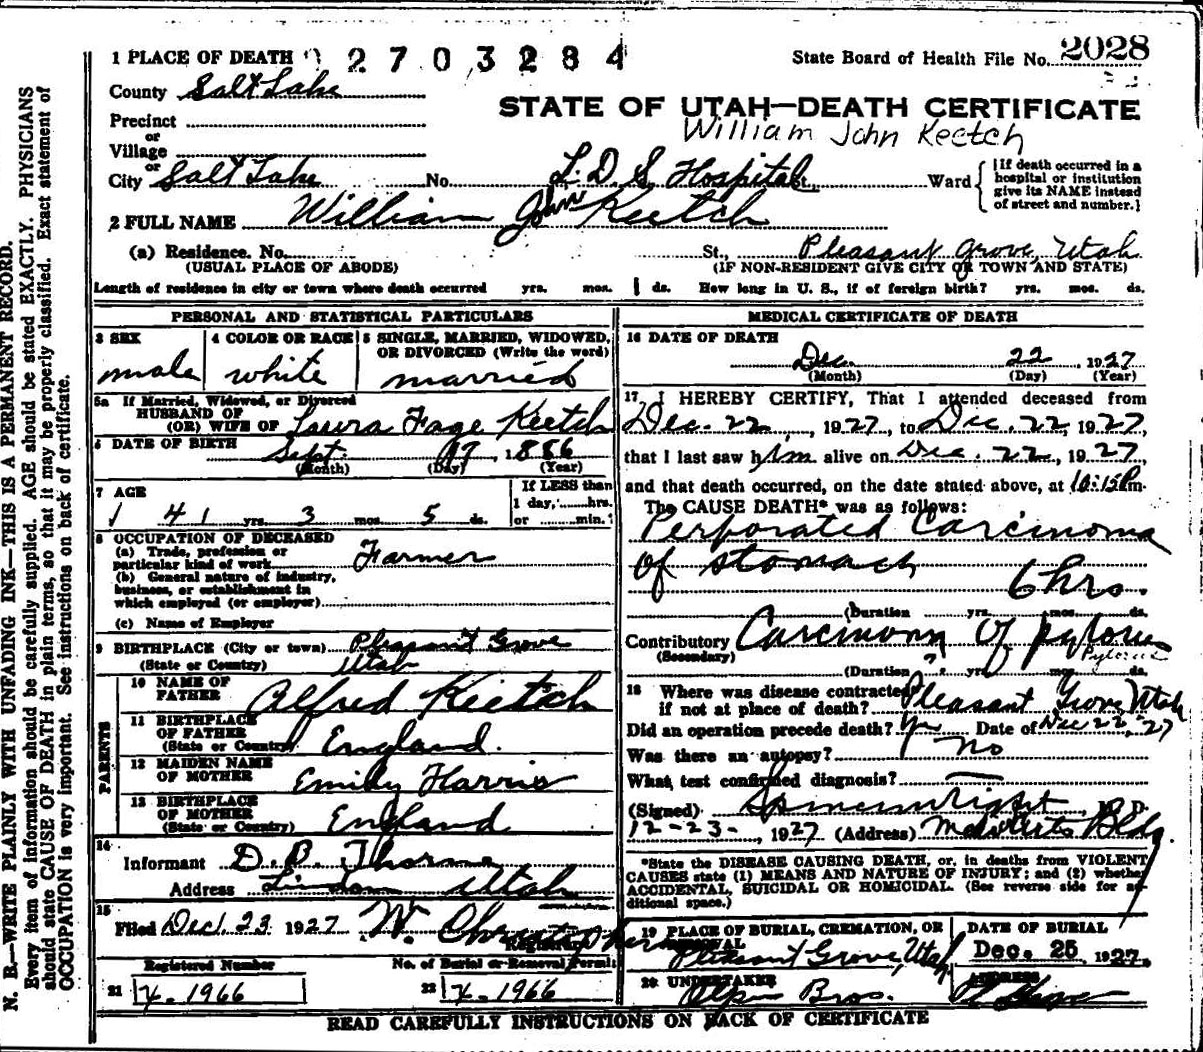 1 PLACE OF DEATH 2703284 State Board of Health File No. 2028
County Salt Lake
STATE OF UTAH—DEATH CERTIFICATE
Precinct
William John Keetch
or
Village
or
City Salt Lake No. L.D.S. Hospital St., Ward
{If death occurred in a
hospital or institution
give its NAME instead
of street and number.}
2 FULL NAME William John Keetch
(a) Residence. No. St., Pleasant Grove, Utah
(USUAL PLACE OF ABODE) (IF NON-RESIDENT GIVE CITY OR TOWN AND STATE)
Length of residence in city or town where death occurred yrs. mos. 1 ds. How long in U. S., if of foreign birth? yrs. mos. ds.
PERSONAL AND STATISTICAL PARTICULARS
3 SEX 4 COLOR OR RACE 5 SINGLE, MARRIED, WIDOWED,
OR DIVORCED (Write the word)
male white married
5a If Married, Widowed, or Divorced
HUSBAND OF
(OR) WIFE OF Laura Fage Keetch
6 DATE OF BIRTH Sept 17, 1886
(Month) (Day) (Year)
7 AGE If LESS than
1 day, hrs.
41 yrs. 3 mos. 5 ds. or min.
8 OCCUPATION OF DECEASED
(a) Trade, profession or
particular kind of work Farmer
(b) General nature of industry,
business, or establishment in
which employed (or employer)
(c) Name of Employer
9 BIRTHPLACE (City or town) Pleasant Grove
(State or Country) Utah
PARENTS
10 NAME OF
FATHER Alfred Keetch
11 BIRTHPLACE
OF FATHER
(State or Country) England.
12 MAIDEN NAME
OF MOTHER Emily Harris
13 BIRTHPLACE
OF MOTHER
(State or Country) England
14
Informant D. B. Thorne
Address Lindon Utah
15
Filed Dec. 23 1927 W. Christopherson
Registrar
Registered Number No. of Burial or Removal Permit
21 X. 1966 22 X. 1966
MEDICAL CERTIFICATE OF DEATH
16 DATE OF DEATH
Dec. 22 1927
(Month) (Day) (Year)
17 I HEREBY CERTIFY, That I attended deceased from
Dec. 22, 1927, to Dec. 22, 1927,
that I last saw him alive on Dec. 22, 1927,
and that death occurred, on the date stated above, at 10:15 Pm.
The CAUSE DEATH* was as follows:
Perforated Carcinoma
of stomach
6 hrs.
(Duration yrs. mos. ds.
Contributory Carcinoma of pylorus
(Secondary) Pylorus
(Duration ? yrs. mos. ds.
18 Where was disease contracted
if not at place of death? Pleasant Grove Utah
Did an operation precede death? Yes Date of Dec 22, '27
Was there an autopsy? No
What test confirmed diagnosis? —
(Signed) Spencer Wright, M. D.
12-23-, 1927 (Address) Med Arts Bldg.
*State the DISEASE CAUSING DEATH, or, in deaths from VIOLENT
CAUSES state (1) MEANS AND NATURE OF INJURY; and (2) whether
ACCIDENTAL, SUICIDAL OR HOMICIDAL. (See reverse side for ad-
ditional space.)
19 PLACE OF BURIAL, CREMATION, OR
REMOVAL
Pleasant Grove, Utah
DATE OF BURIAL
Dec. 25 1927.
20 UNDERTAKER ADDRESS
Olpin Bros. Pl Grove
READ CAREFULLY INSTRUCTIONS ON BACK OF CERTIFICATE
N. B.—WRITE PLAINLY WITH UNFADING INK—THIS IS A PERMANENT RECORD.
Every item of information should be carefully supplied. AGE should be stated EXACTLY. PHYSICIANS
should state CAUSE OF DEATH in plain terms, so that it may be properly classified. Exact statement of
OCCUPATION is very important. See instructions on back of certificate.